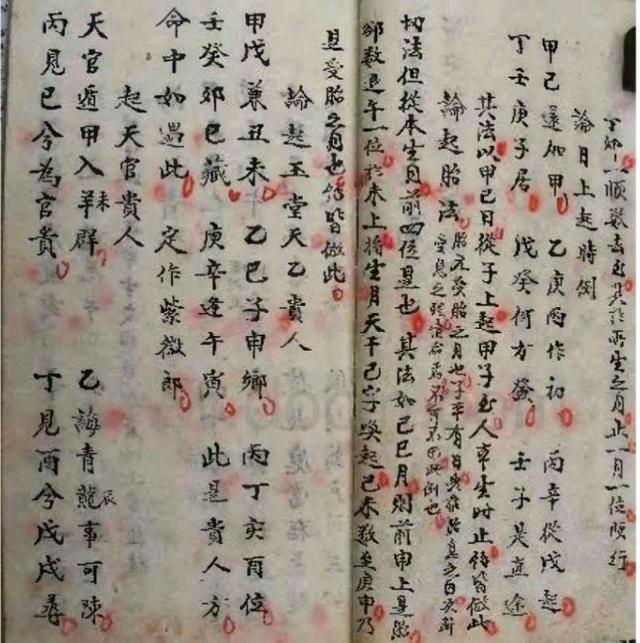 一順數去至其於所生之月止一月一位順行
論日上起時例
甲己還加甲 乙庚丙作初 丙辛從戊起
丁壬庚子居 戊癸何方發 壬子是直途
其法以甲己日從子上起甲子至人本生時止餘皆倣此
論起胎法 胎元受胎之月也子平有曰
受息之
切法但從本生月前四位是也 其法如己巳月則前申上是胎
卻數退午一位於未上將生月天干己字喚起己未數至庚申乃
是受胎之月也餘皆倣此
論起玉堂天乙貴人
甲戊兼丑未 乙己子申鄉 丙丁亥酉位
壬癸卯巳藏 庚辛逢午寅 此是貴人方
命中如遇此 定作紫微郎
起天官貴人
天官遁甲入羊未群 乙誨青龍辰事可陳
丙見巳兮為官貴 丁見酉兮戊戌尋